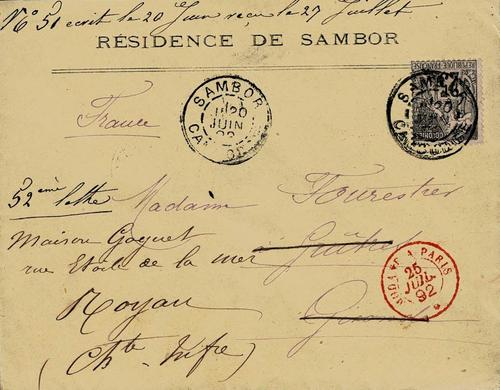 N° 51 écrit le 20 Juin reçu le 27 Juillet
RÉSIDENCE DE SAMBOR
SAMBOR
20
JUIN
92
France
SAMBOR
20
52ème lettre
Madame Fourestier
Maison Goguet
Guîtres
rue Etoile de la mer
Gironde
Royan
(Ch^te Infre)
A PARIS
25
JUIL
92